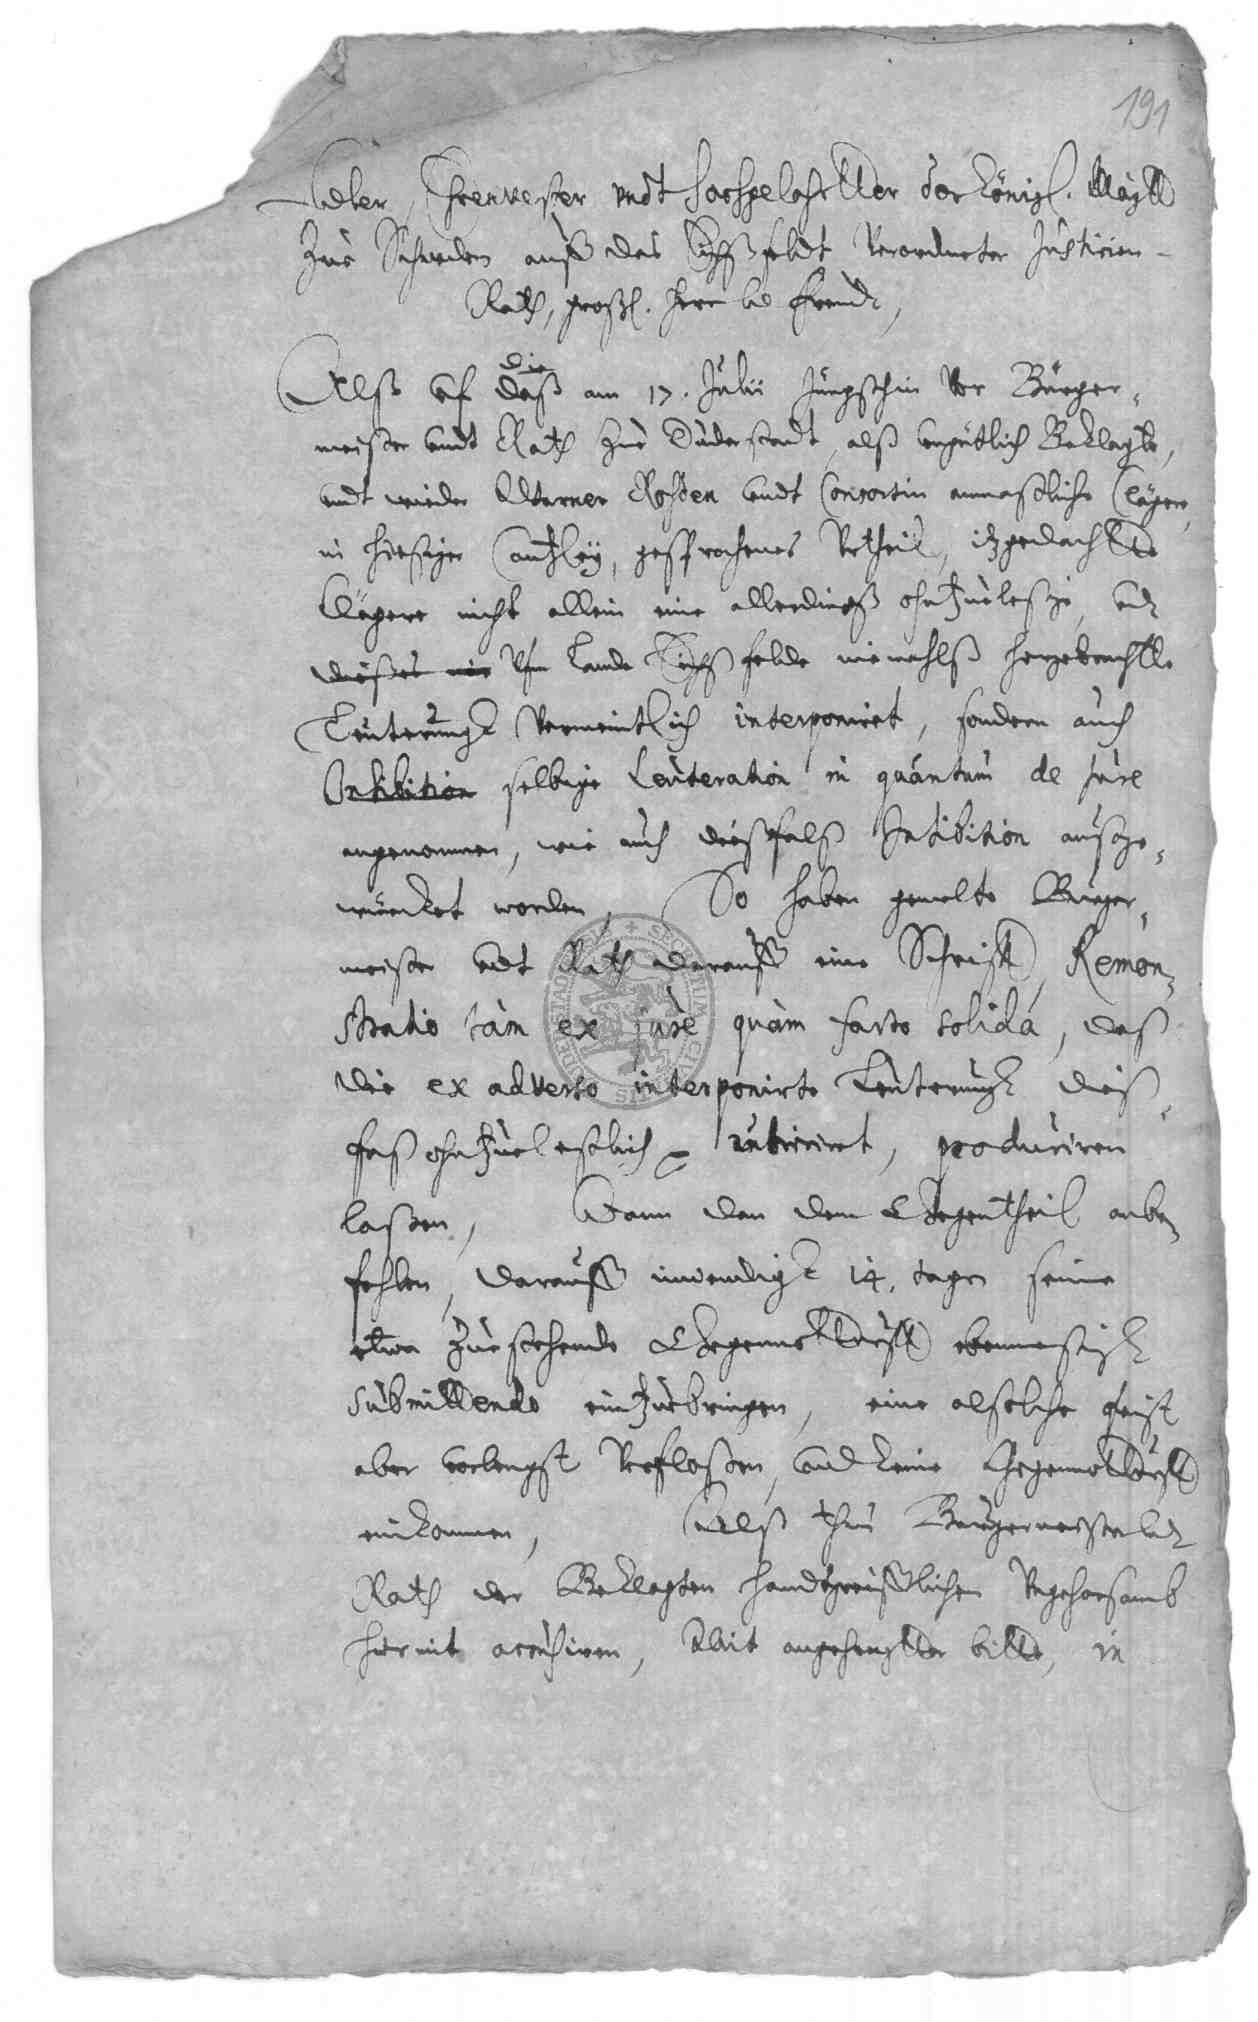 191
Edler, Ehrenvester undt hochgelahrtter der Königl. Maytt
zue Schweden auff das Eichßfeldt verordneter Justicien-
Rath, großg. Herr undt Freundt,
Alß uf die daß am 17. Julii jüngsthin vor Bürger-
meister undt Rath zue Duderstadt, alß ... Beklagte,
undt wieder Werner Rohden undt Consortin anmaßliche Clägere,
in hiesiger Cantzley, gesprochenes Urtheil, itzgedachtte
Clägere nicht allein eine allerdingß ohnzueleßige, undt
dießes ufm Lande Eichßfelde niemahlß hergebrachtte
Leuterungk vermeintlich interponiret, sondern auch
Inhibition selbige Leuteration in quantum de jure
angenommen, wie auch dießfalß Inhibition außge-
würcket worden, So haben gemelte Bürger-
meister undt Rath darauff eine Schrifft, Remon-
stratio tam ex jure quam facto solida, daß
die ex adverso interponirte Leuterungk dieß
falß ohnzueleßlich rubriciret, produciren
laßen, Wann dan dem Gegentheil anbe-
fohlen, darauff inwendigk 14. tagen seine
etwa zuestehende Gegennotturfft ebenmeßigk
submittendo einzuebringen, eine alsolche frist
aber vorlengst verfloßen, undt keine Gegennotturfft
einkommen, Alß thun Bürgermeister undt
Rath der Beklagten handtgreifflichen Ungehorsamb
hiermit accusiren, Mit angehengtter bitte, in